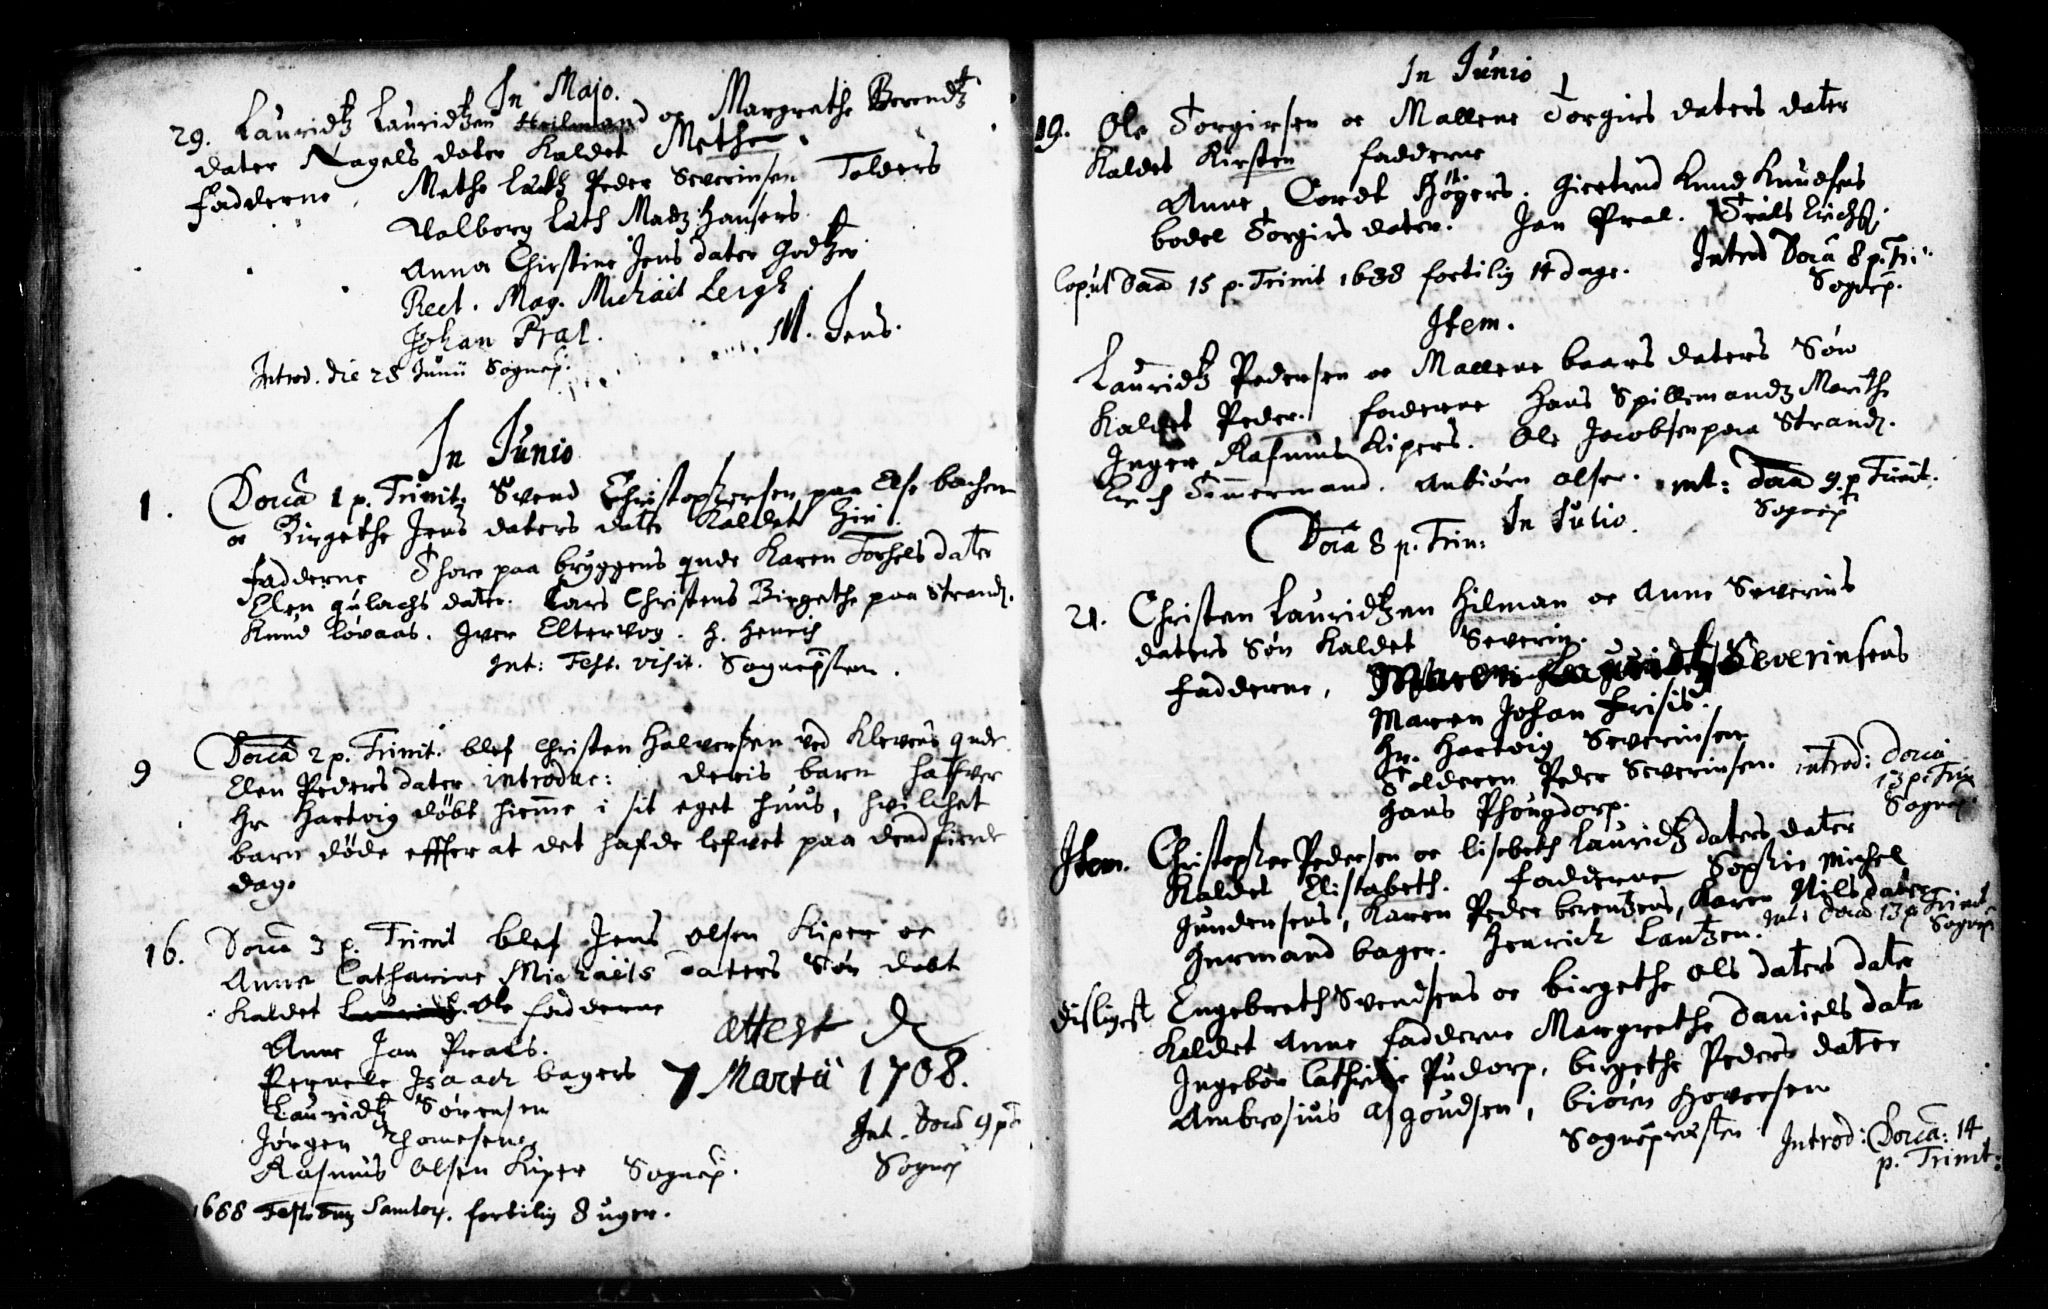 In Majo.
29. Lauridtz Lauridtzen og Margrethe Berendtz
dater Nagels dater kaldet Methe.
Fadderne, Methe Peder Severinsen Tolders
Valborg Madz Hansers.
Anna Christine Jens dater
Rect. Mag. Michael Leigh.
Johan Pral. M. Jens.
Introd. die 28 Junii Sognep.
In Junio
1. Dorca 1 p. Trinit. Svend Christophersen paa Else bachen
oc Birgethe Jens daters dater kaldet Siri.
Fadderne Thore paa bryggens qvinde Karen Torkels dater
Elen dater. Lars Christens Birgethe paa Strand.
Knud Løvaas. Iver Eltervog. H. Henrich
Int: Fest. visit. Sognepsten.
9 Dorca 2 p. Trinit. blef Christen Halversen ved Klevens qvinde
Elen Peders dater introduc: deris barn hafver
Hr Hartvig døbt hiemme i sit eget huus, hvilchet
barn døde effter at det hafde lefvet paa dend fierde
dag.
16. Dorca 3 p. Trinit blef Jens Olsen Kiper oc
Anne Catharine Michaels daters Søn døbt
kaldet Ole fadderne
Anne Jan Prals.
Pernele Isaach bagers
Lauridtz Sørensen
Jørgen Thomesen
Rasmus Olsen Kiper Sognep.
attest
7 Martii 1708.
Int. Dorca 9 p
Sognep
1688 Fest. fortilig 8 uger.
In Junio
19. Ole Torgirsen oc Mallene Torgirs daters dater
kaldet Kirsten fadderne
Anne Cordt Høyers. Giertrud Knud Knudsens
bodel Torgirs dater. Jan Pral. Truls Erichs.
Copul Dca 15 p. Trinit 1688 fortilig 14 dage. Introd Dorca 8 p. Tri:
Sognep.
Item.
Lauridtz Pedersen oc Mallene baars daters Søn
kaldet Peder. faderne Hans Spillemandz Marithe
Inger Rasmus Kipers. Ole Jacobsen paa Strand.
Erich Timmermand. Anbiørn Olsen. int: dca 9. p Trinit.
Sognep
In Julio.
Dorca 8 p. Trin:
21. Christen Lauridtzen Hilman oc Anne Severins
daters Søn kaldet Severin.
Fadderne, Maren Lauridtz Severinsens
Maren Johan Frisis.
Hr. Hartvig Severinsen
Tolderen Peder Severinsen. introd: Dorca
13 p. Trin
Hans Phougdorp. Sognep.
Item. Christopher Pedersen oc Lisebeth Lauridtz daters dater
kaldet Elisabeth. fadderne Sophie Michel
Gundersens, Karen Peder berentzens, Karen Nils dater
Hermand bager. Henrich Lantzen. Int: Dca 13 p Trinit
Sognep
disligest Engebreth Svendsens oc birgethe Ols daters dater
kaldet Anne fadderne Margrethe Daniels dater
Ingebor Cathrine Pudorp, birgethe Peders dater
Ambrosius Asgoudsen, biørn Hoversen
Sognepresten Introd: Dorca: 14
p. Trinit: